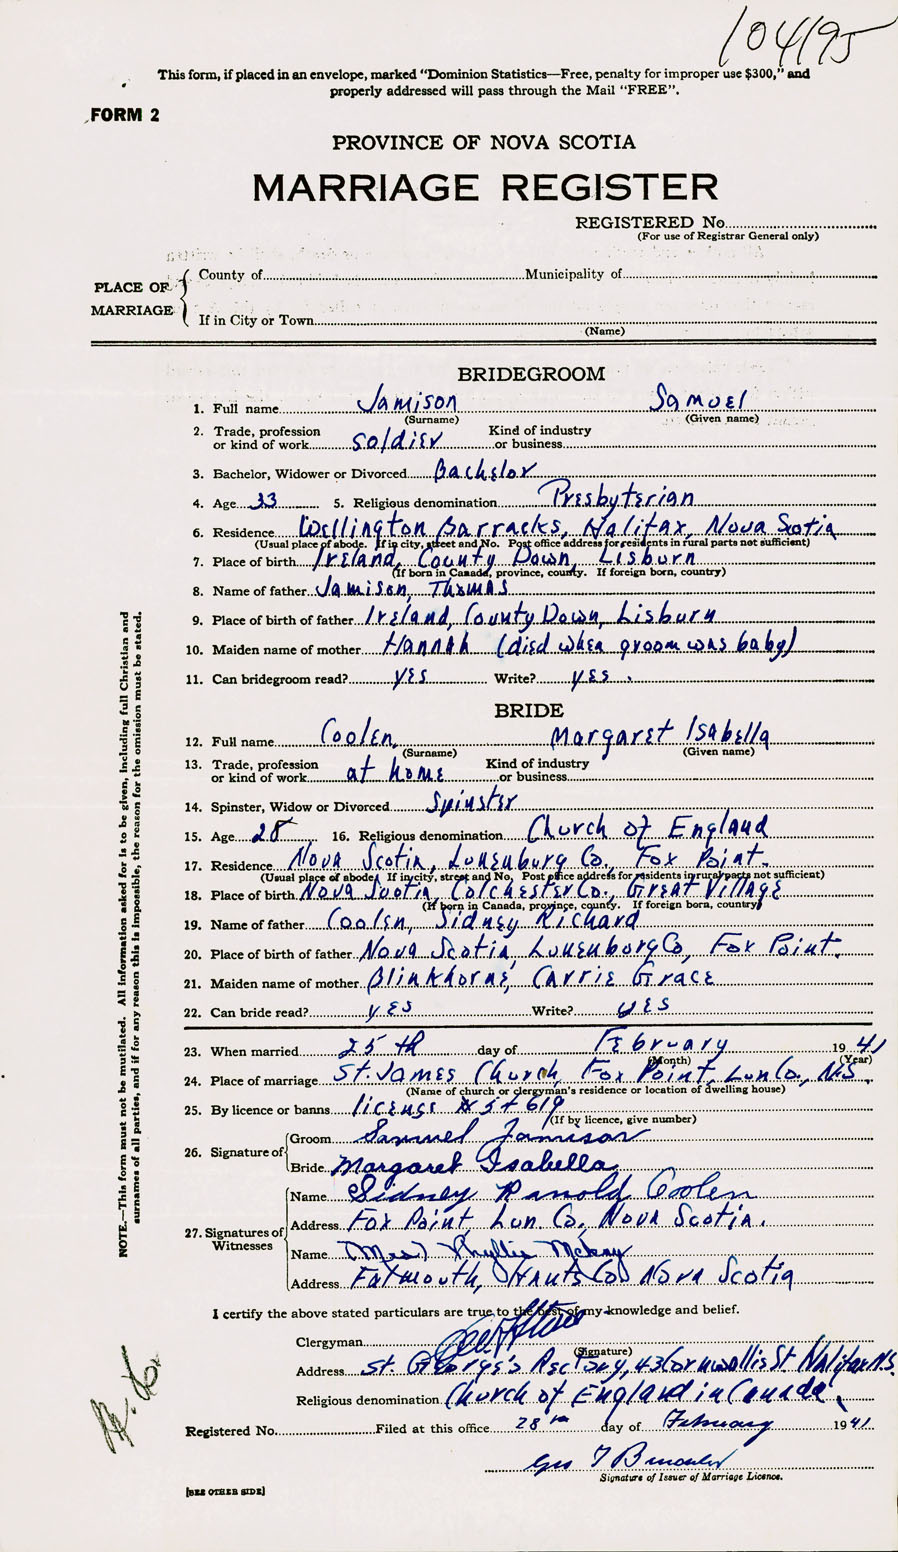 104195
This form, if placed in an envelope, marked "Dominion Statistics—Free, penalty for improper use $300," and
properly addressed will pass through the Mail "FREE".
FORM 2
PROVINCE OF NOVA SCOTIA
MARRIAGE REGISTER
REGISTERED No.
(For use of Registrar General only)
PLACE OF MARRIAGE
County of Municipality of
If in City or Town
(Name)
BRIDEGROOM
1. Full name Jamison Samuel
(Surname) (Given name)
2. Trade, profession or kind of work soldier Kind of industry or business
3. Bachelor, Widower or Divorced Bachelor
4. Age 33 5. Religious denomination Presbyterian
6. Residence Wellington Barracks, Halifax, Nova Scotia
(Usual place of abode. If in city, street and No. Post office address for residents in rural parts not sufficient)
7. Place of birth Ireland, County Down, Lisburn
(If born in Canada, province, county. If foreign born, country)
8. Name of father Jamison, Thomas
9. Place of birth of father Ireland, County Down, Lisburn
10. Maiden name of mother Hannah (died when groom was baby)
11. Can bridegroom read? yes Write? yes.
BRIDE
12. Full name Coolen, Margaret Isabella
(Surname) (Given name)
13. Trade, profession or kind of work at home Kind of industry or business
14. Spinster, Widow or Divorced Spinster
15. Age 28 16. Religious denomination Church of England
17. Residence Nova Scotia, Lunenburg Co. Fox Point.
(Usual place of abode. If in city, street and No. Post office address for residents in rural parts not sufficient)
18. Place of birth Nova Scotia, Colchester Co., Great Village
(If born in Canada, province, county. If foreign born, country)
19. Name of father Coolen, Sidney Richard
20. Place of birth of father Nova Scotia, Lunenburg Co, Fox Point.
21. Maiden name of mother Blinkhorne, Carrie Grace
22. Can bride read? yes Write? yes
23. When married 25th day of February 1941
(Month) (Year)
24. Place of marriage St. James Church, Fox Point, Lun Co., N.S.
(Name of church or clergyman's residence or location of dwelling house)
25. By licence or banns license # 5+619
(If by licence, give number)
26. Signature of
Groom Samuel Jamison
Bride Margaret Isabella
27. Signatures of Witnesses
Name Sidney Arnold Coolen
Address Fox Point, Lun. Co., Nova Scotia.
Name (Mrs) Phyllis McKay
Address Falmouth, Hants Co Nova Scotia
I certify the above stated particulars are true to the best of my knowledge and belief.
Clergyman
(Signature)
Address St. George's Rectory, 43 Cornwallis St. Halifax N.S.
Religious denomination Church of England in Canada.
Registered No. Filed at this office 28th day of February 1941
Geo
Signature of Issuer of Marriage Licence.
[SEE OTHER SIDE]
NOTE.—This form must not be mutilated. All information asked for is to be given, including full Christian and
surnames of all parties, and if for any reason this is impossible, the reason for the omission must be stated.